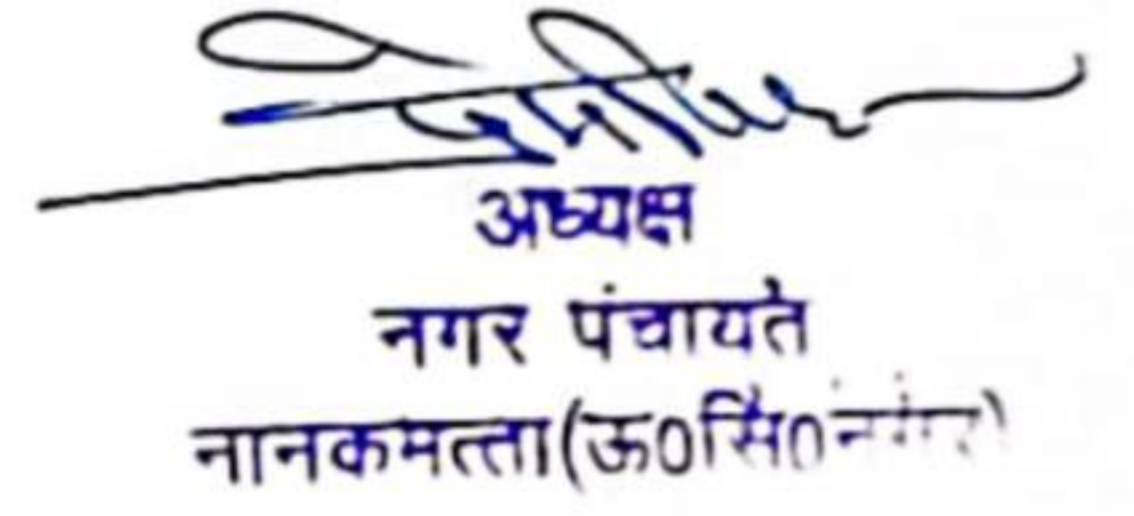 अध्यक्ष
नगर पंचायत
नानकमत्ता(ऊ0सिं0नगर)